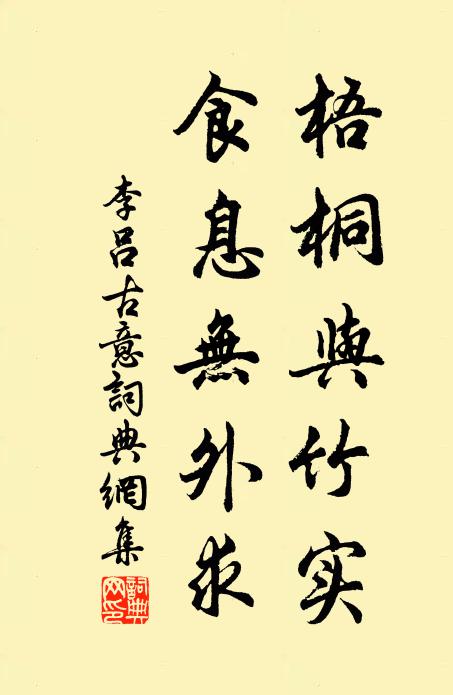 梧桐與竹实
食息無外求
李吕古意詞典網集
詞典網印